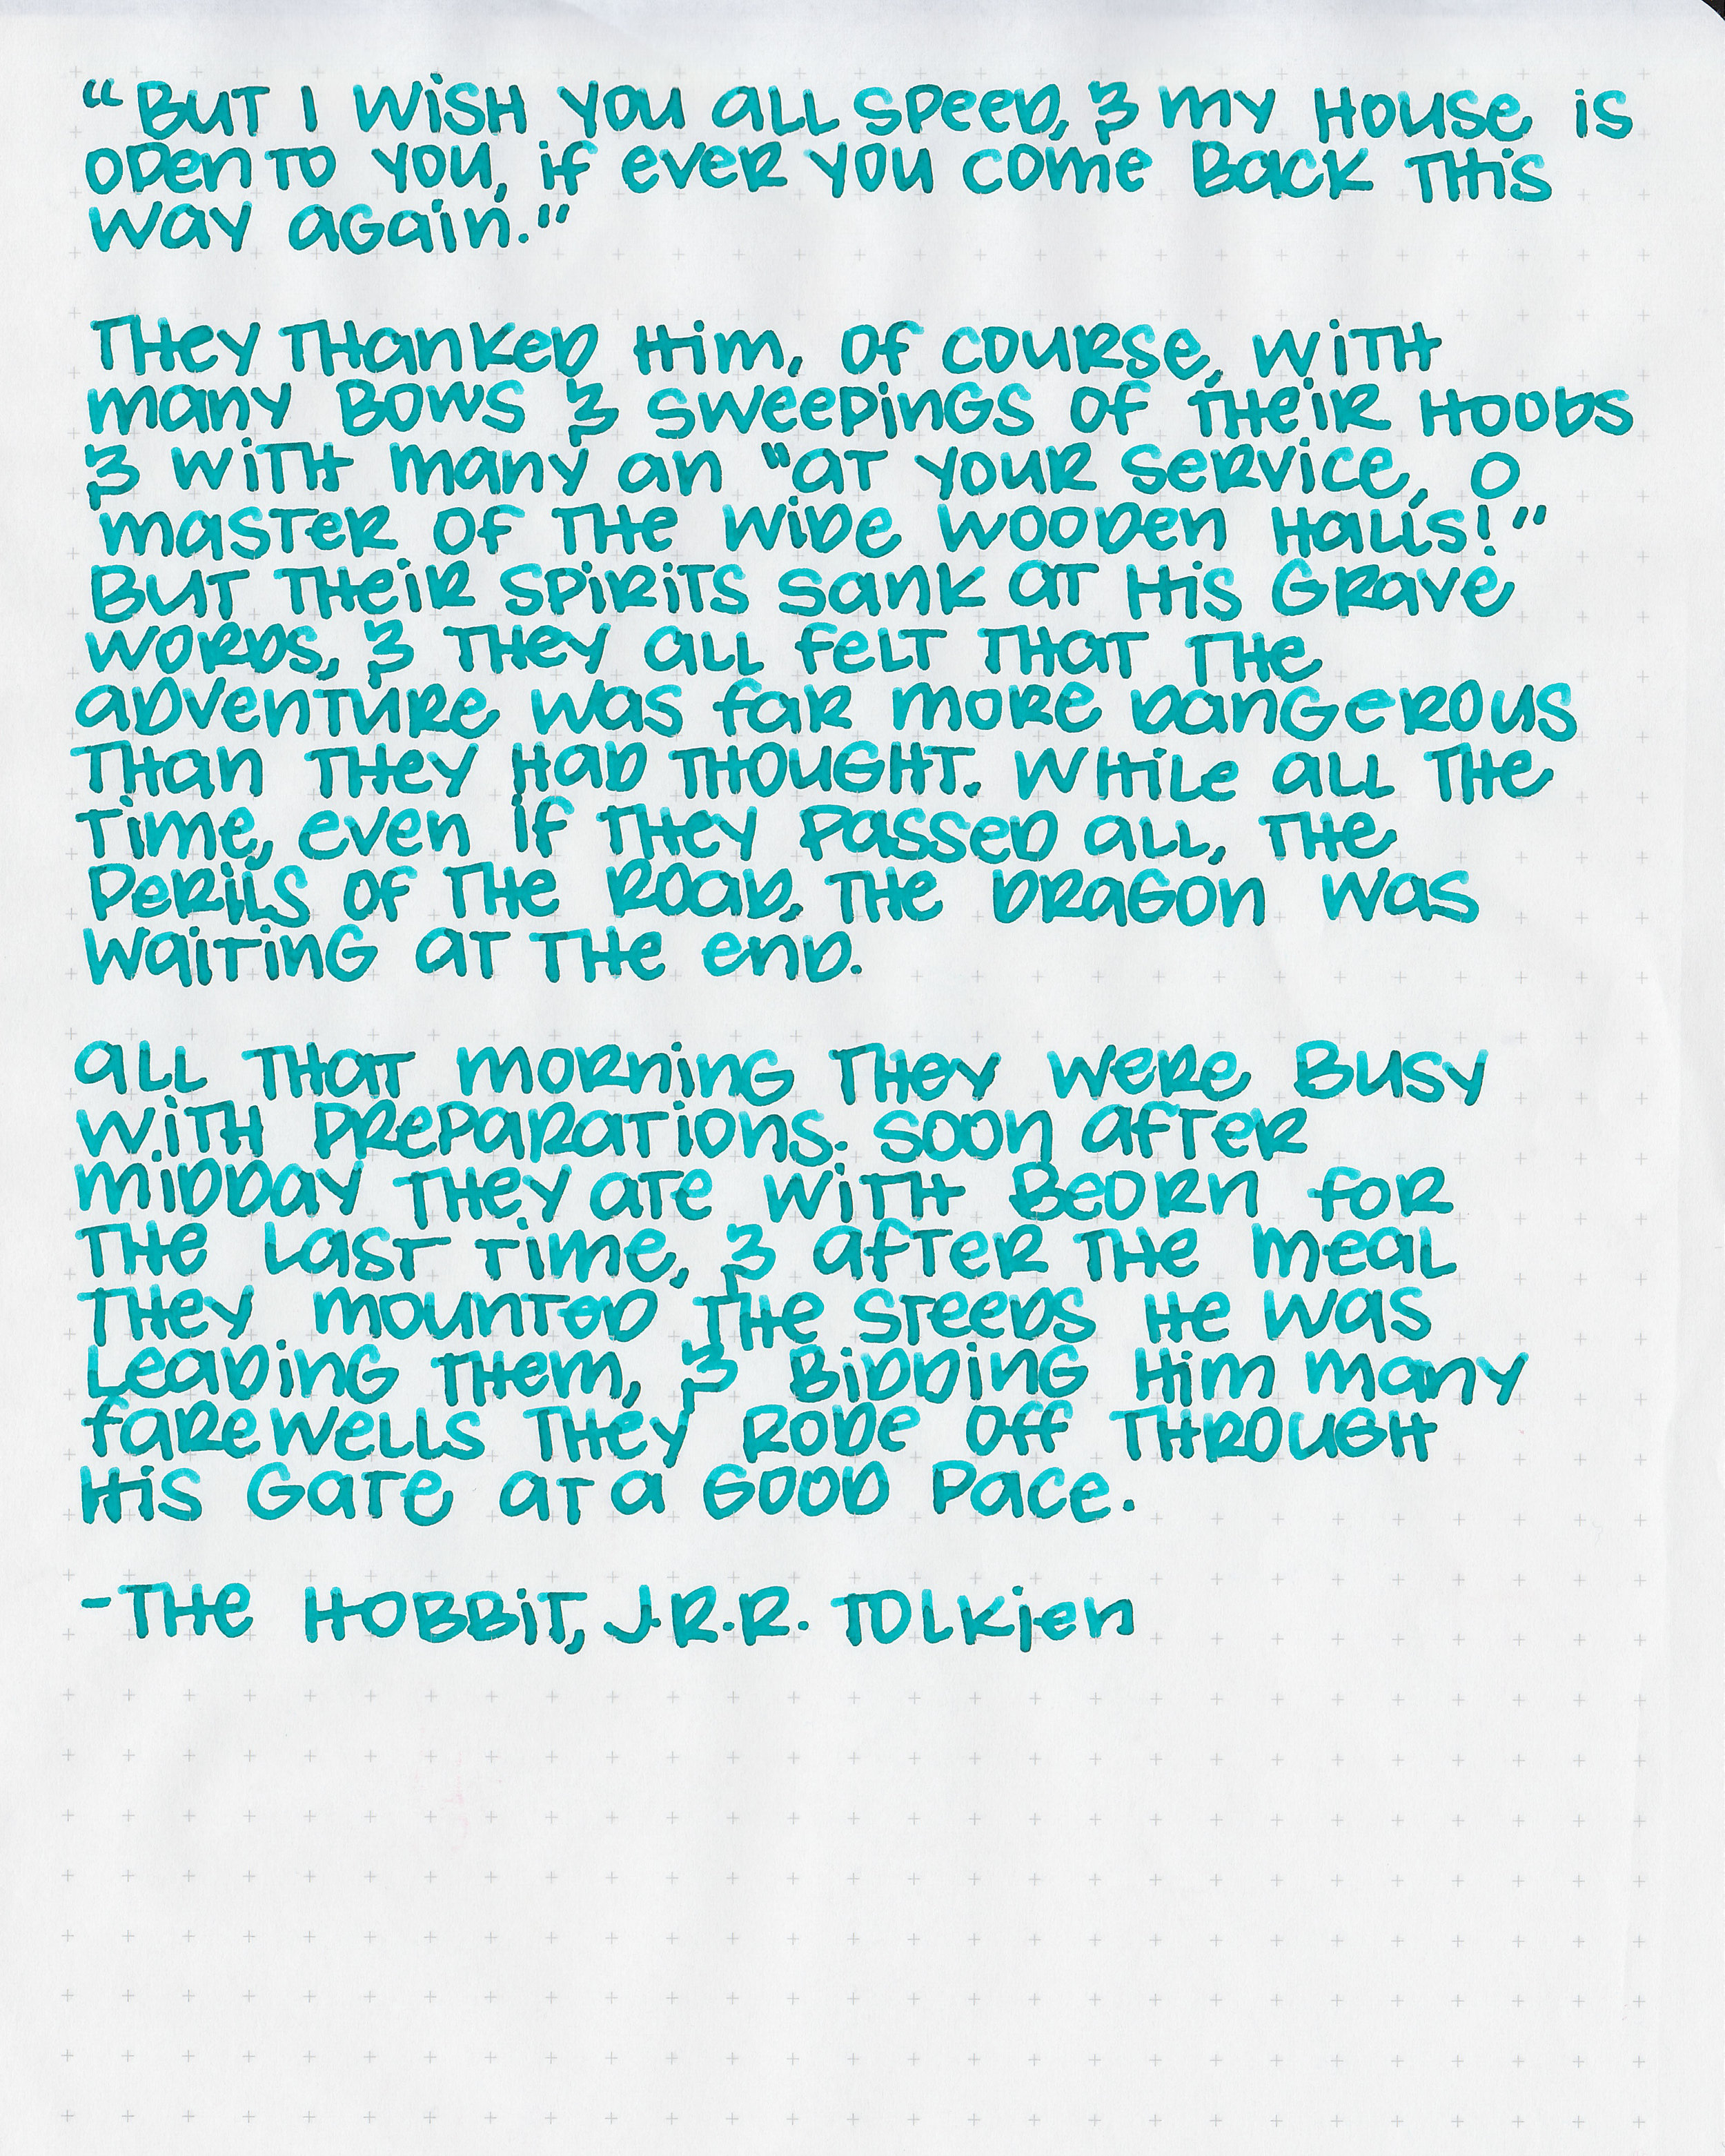 "But I wish you all speed, & my house is
open to you, if ever you come back this
way again."
They thanked him, of course, with
many bows & sweepings of their hoods
& with many an "at your service, O
master of the wide wooden halls!"
But their spirits sank at his grave
words, & they all felt that the
adventure was far more dangerous
than they had thought. While all the
time, even if they passed all, the
perils of the road, the dragon was
waiting at the end.
All that morning they were busy
with preparations. Soon after
midday they ate with Beorn for
the last time, & after the meal
they mounted the steeds he was
leading them, & bidding him many
farewells they rode off through
his gate at a good pace.
-The Hobbit, J.R.R. Tolkien